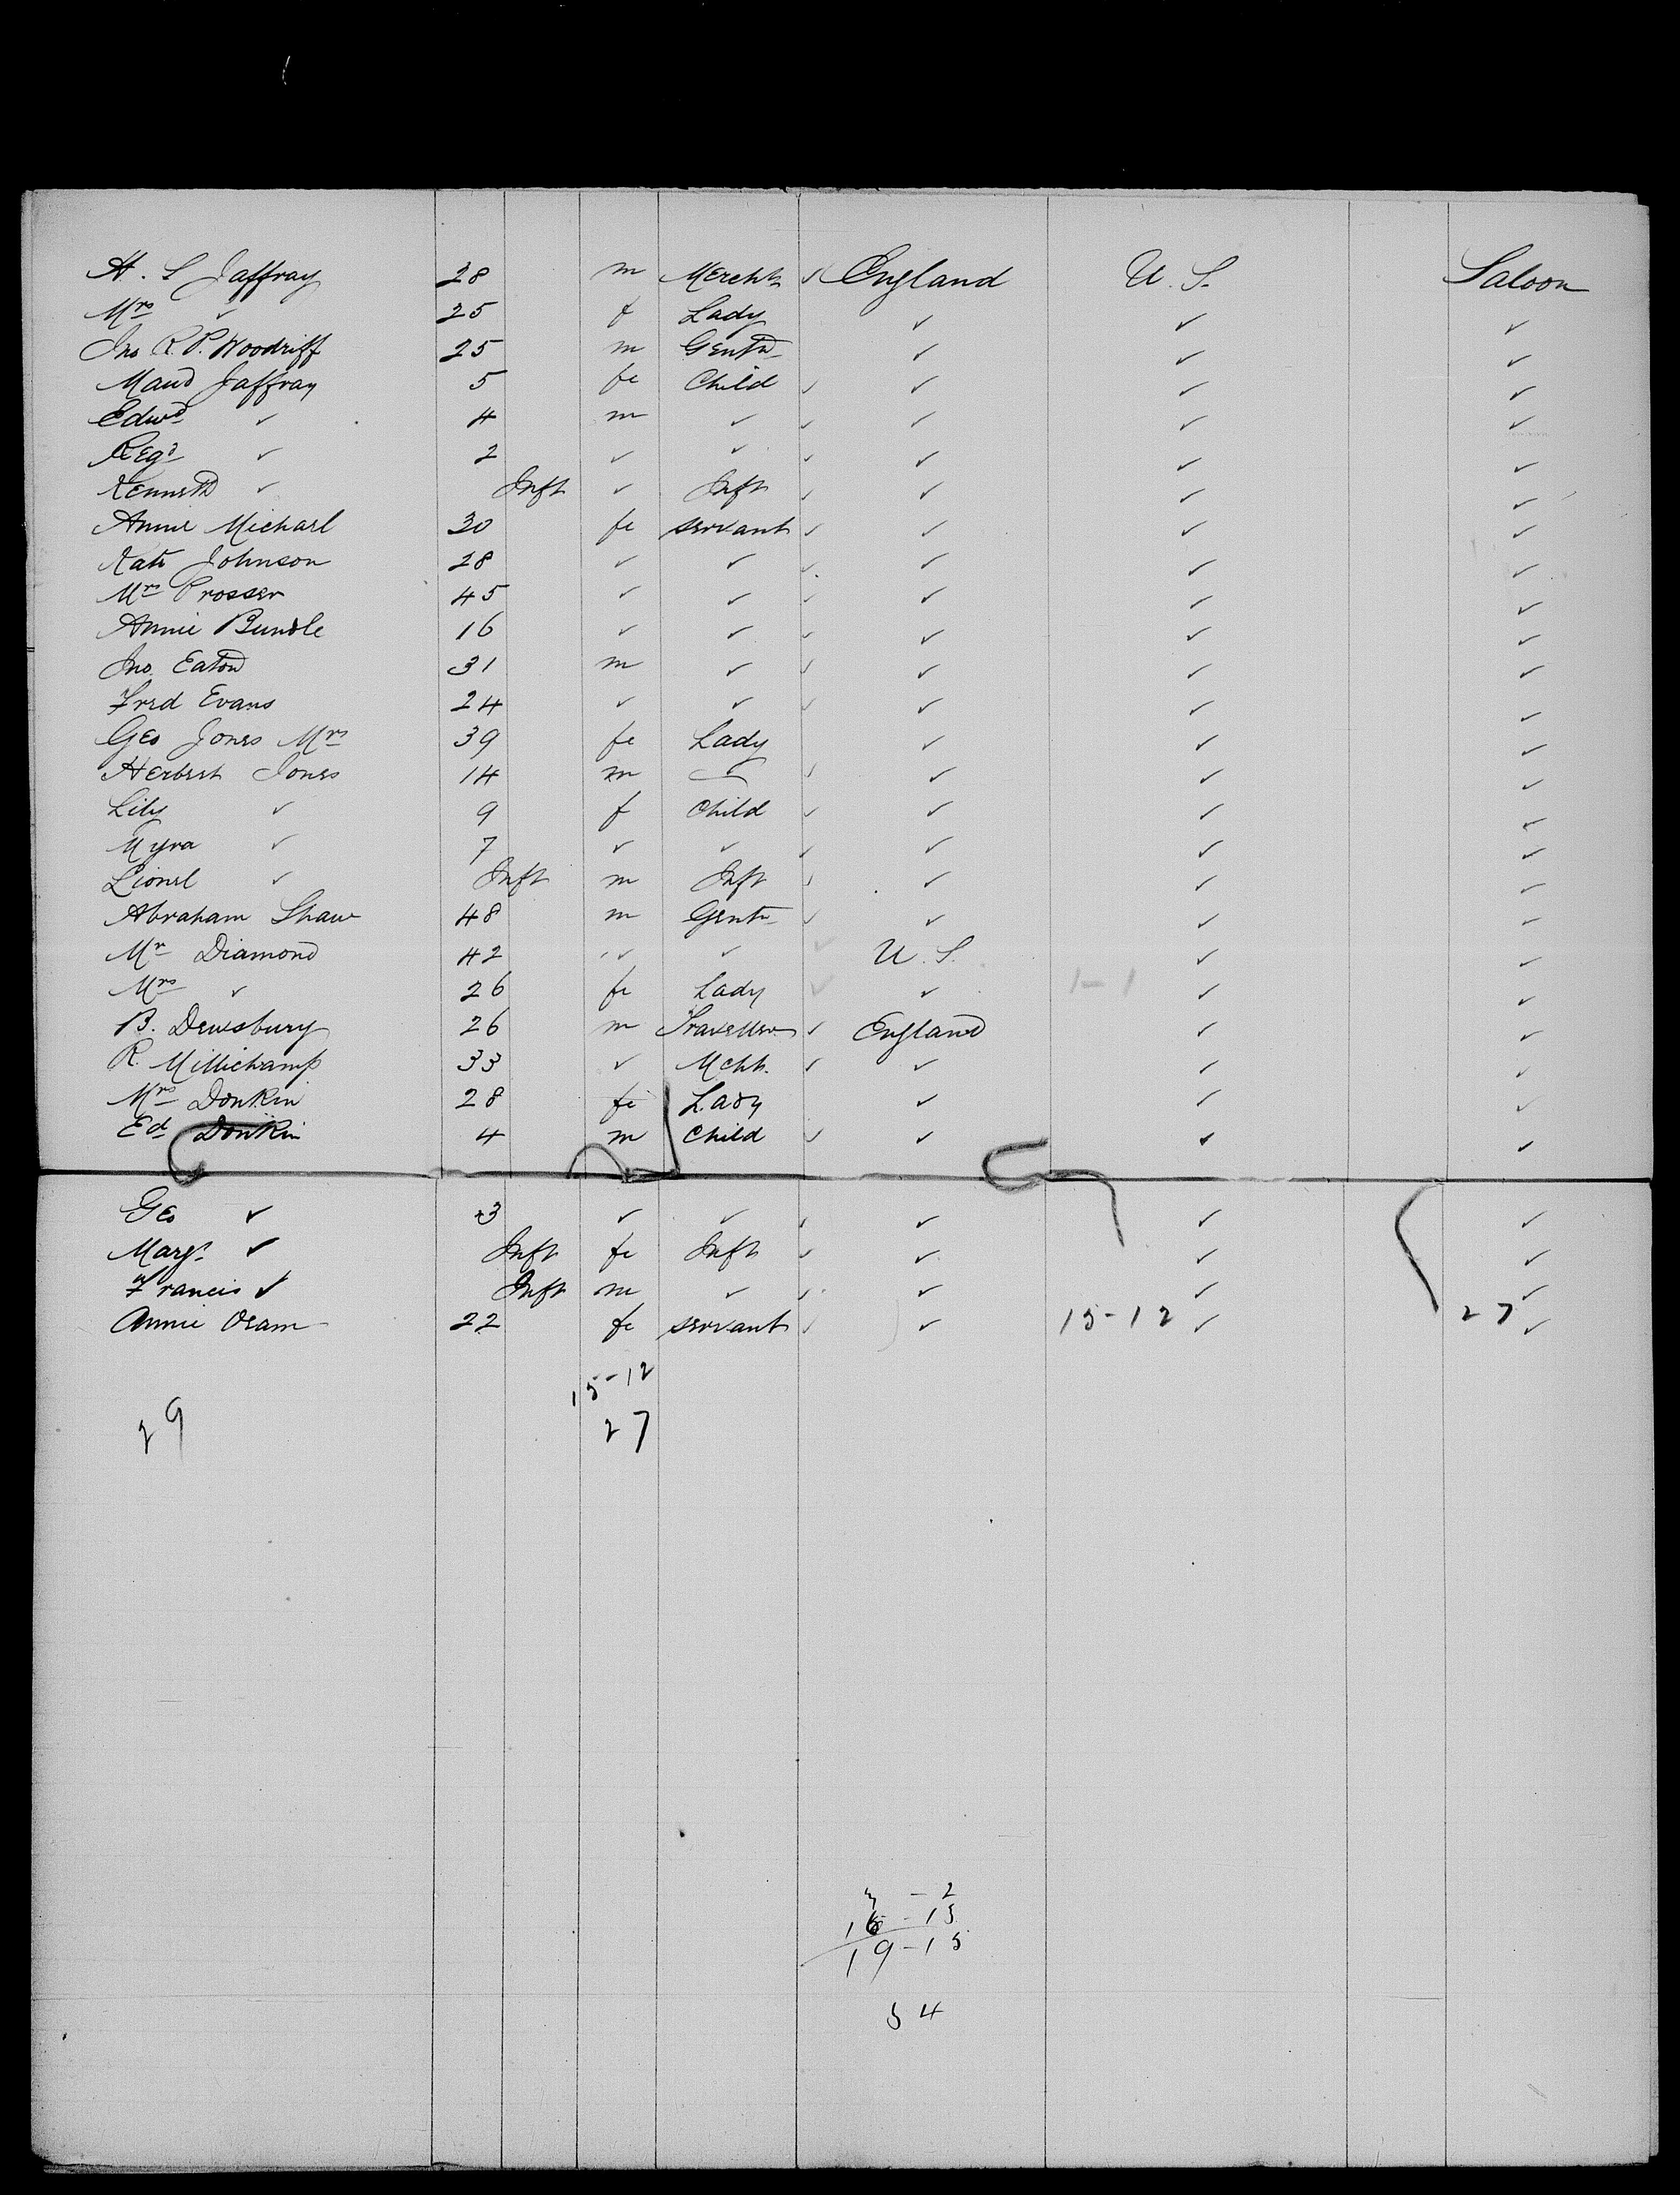 H. S Jaffray 28 m Mercht ✓ England U. S. Saloon
Mrs ✓ 25 f Lady ✓ ✓ ✓
Jno R. P. Woodriff 25 m Gentn ✓ ✓ ✓
Maud Jaffray 5 fe Child ✓ ✓ ✓ ✓
Edwd ✓ 4 m ✓ ✓ ✓ ✓ ✓
Regd ✓ 2 ✓ ✓ ✓ ✓ ✓ ✓
Kenneth ✓ Inft ✓ Inft ✓ ✓ ✓ ✓
Annie Michael 30 fe servant ✓ ✓ ✓ ✓
Kate Johnson 28 ✓ ✓ ✓ ✓ ✓ ✓
Mrs Prosser 45 ✓ ✓ ✓ ✓ ✓ ✓
Annie Bundle 16 ✓ ✓ ✓ ✓ ✓ ✓
Jno. Eaton 31 m ✓ ✓ ✓ ✓ ✓
Fred Evans 24 ✓ ✓ ✓ ✓ ✓ ✓
Geo Jones Mrs 39 fe Lady ✓ ✓ ✓
Herbert Jones 14 m ✓ ✓ ✓ ✓
Lily ✓ 9 f Child ✓ ✓ ✓ ✓
Myra ✓ 7 ✓ ✓ ✓ ✓ ✓ ✓
Lionel ✓ Inft m Inft ✓ ✓ ✓ ✓
Abraham Shaw 48 m Gentn ✓ ✓ ✓ ✓
Mr Diamond 42 ✓ ✓ ✓ U. S. ✓ ✓
Mrs ✓ 26 fe Lady ✓ ✓ 1-1 ✓ ✓
B. Dewsbury 26 m Traveller ✓ England ✓ ✓
R. Millichamp 33 ✓ Mcht. ✓ ✓ ✓ ✓
Mrs Donkin 28 fe Lady ✓ ✓ ✓
Ed Donkin 4 m Child ✓ ✓ ✓ ✓
Geo ✓ 3 ✓ ✓ ✓ ✓ ✓ ✓
Margt ✓ Inft fe Inft ✓ ✓ ✓ ✓
Francis ✓ Inft m ✓ ✓ ✓ ✓ ✓
Annie Oram 22 fe servant ✓ ✓ 15-12 ✓ 27 ✓
15-12
29 27
3 - 2
16 - 13
19-15
54